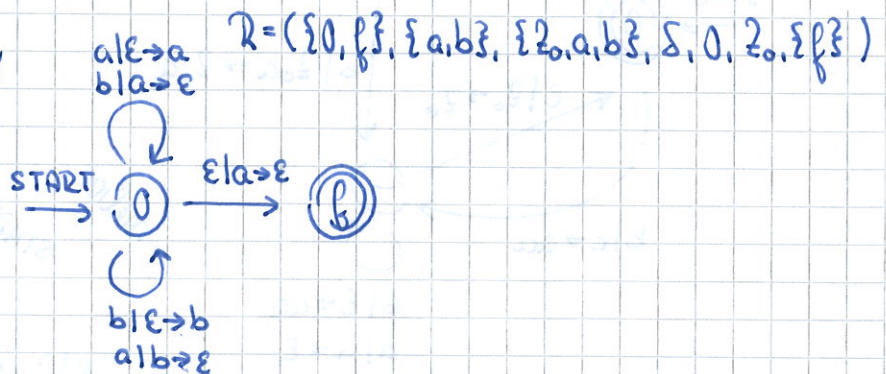 R=({0,f}, {a,b}, {Z₀,a,b}, δ, 0, Z₀, {f})
a|ε→a
b|a→ε
START
0
ε|a→ε
f
b|ε→b
a|b→ε